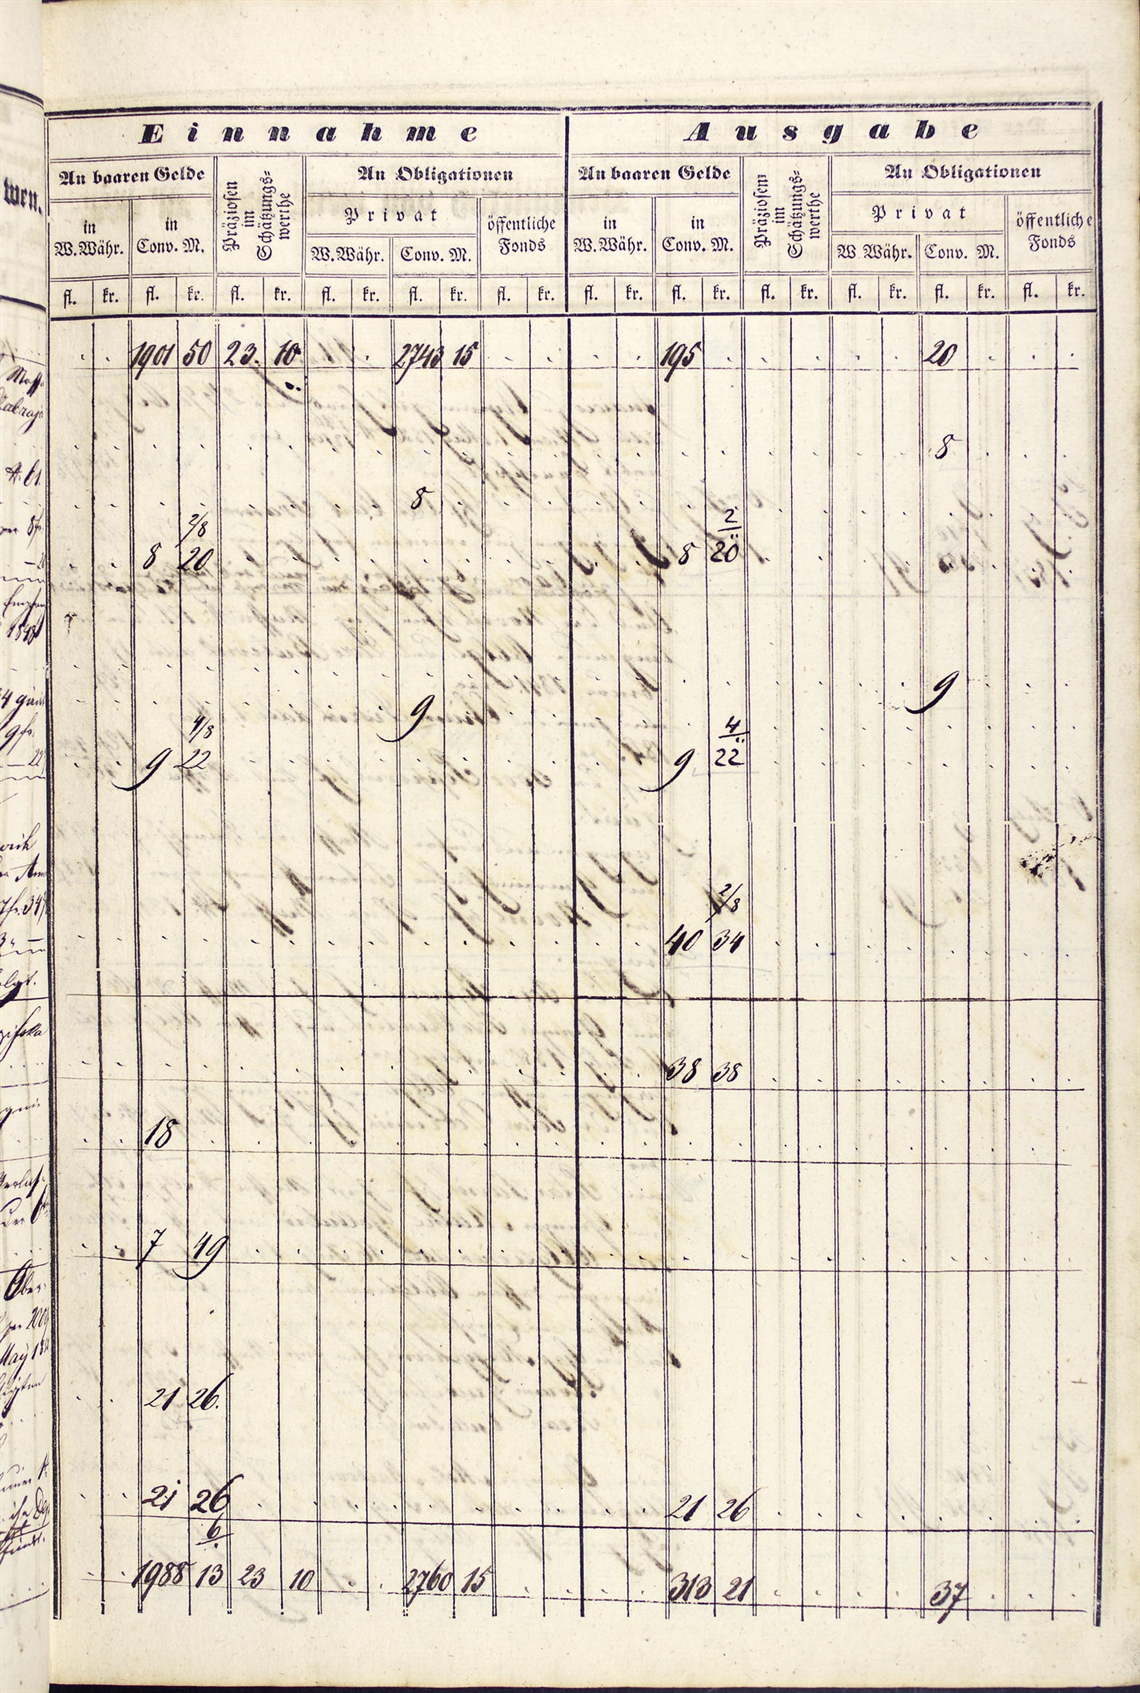 Einnahme Ausgabe
An baaren Gelde An Obligationen An baaren Gelde An Obligationen
Präziosen im Schätzungs=werthe Präziosen im Schätzungs=werthe
wen.
in W.Währ. in Conv. M. Privat öffentliche Fonds in W.Währ. in Conv. M. Privat öffentliche Fonds
W.Währ. Conv. M. W.Währ. Conv. M.
fl. kr. fl. kr. fl. kr. fl. kr. fl. kr. fl. kr. fl. kr. fl. kr. fl. kr. fl. kr. fl. kr. fl. kr.
1901 50 23. 10 2743 15 195 20
8
8
2/8 2
8 20 8 20
9
9
4/8 4
9 22 9 22
2/8
40 34
38 38
18
7 49
21 26.
21 26 21 26
6
1988 13 23 10 2760 15 313 21 37